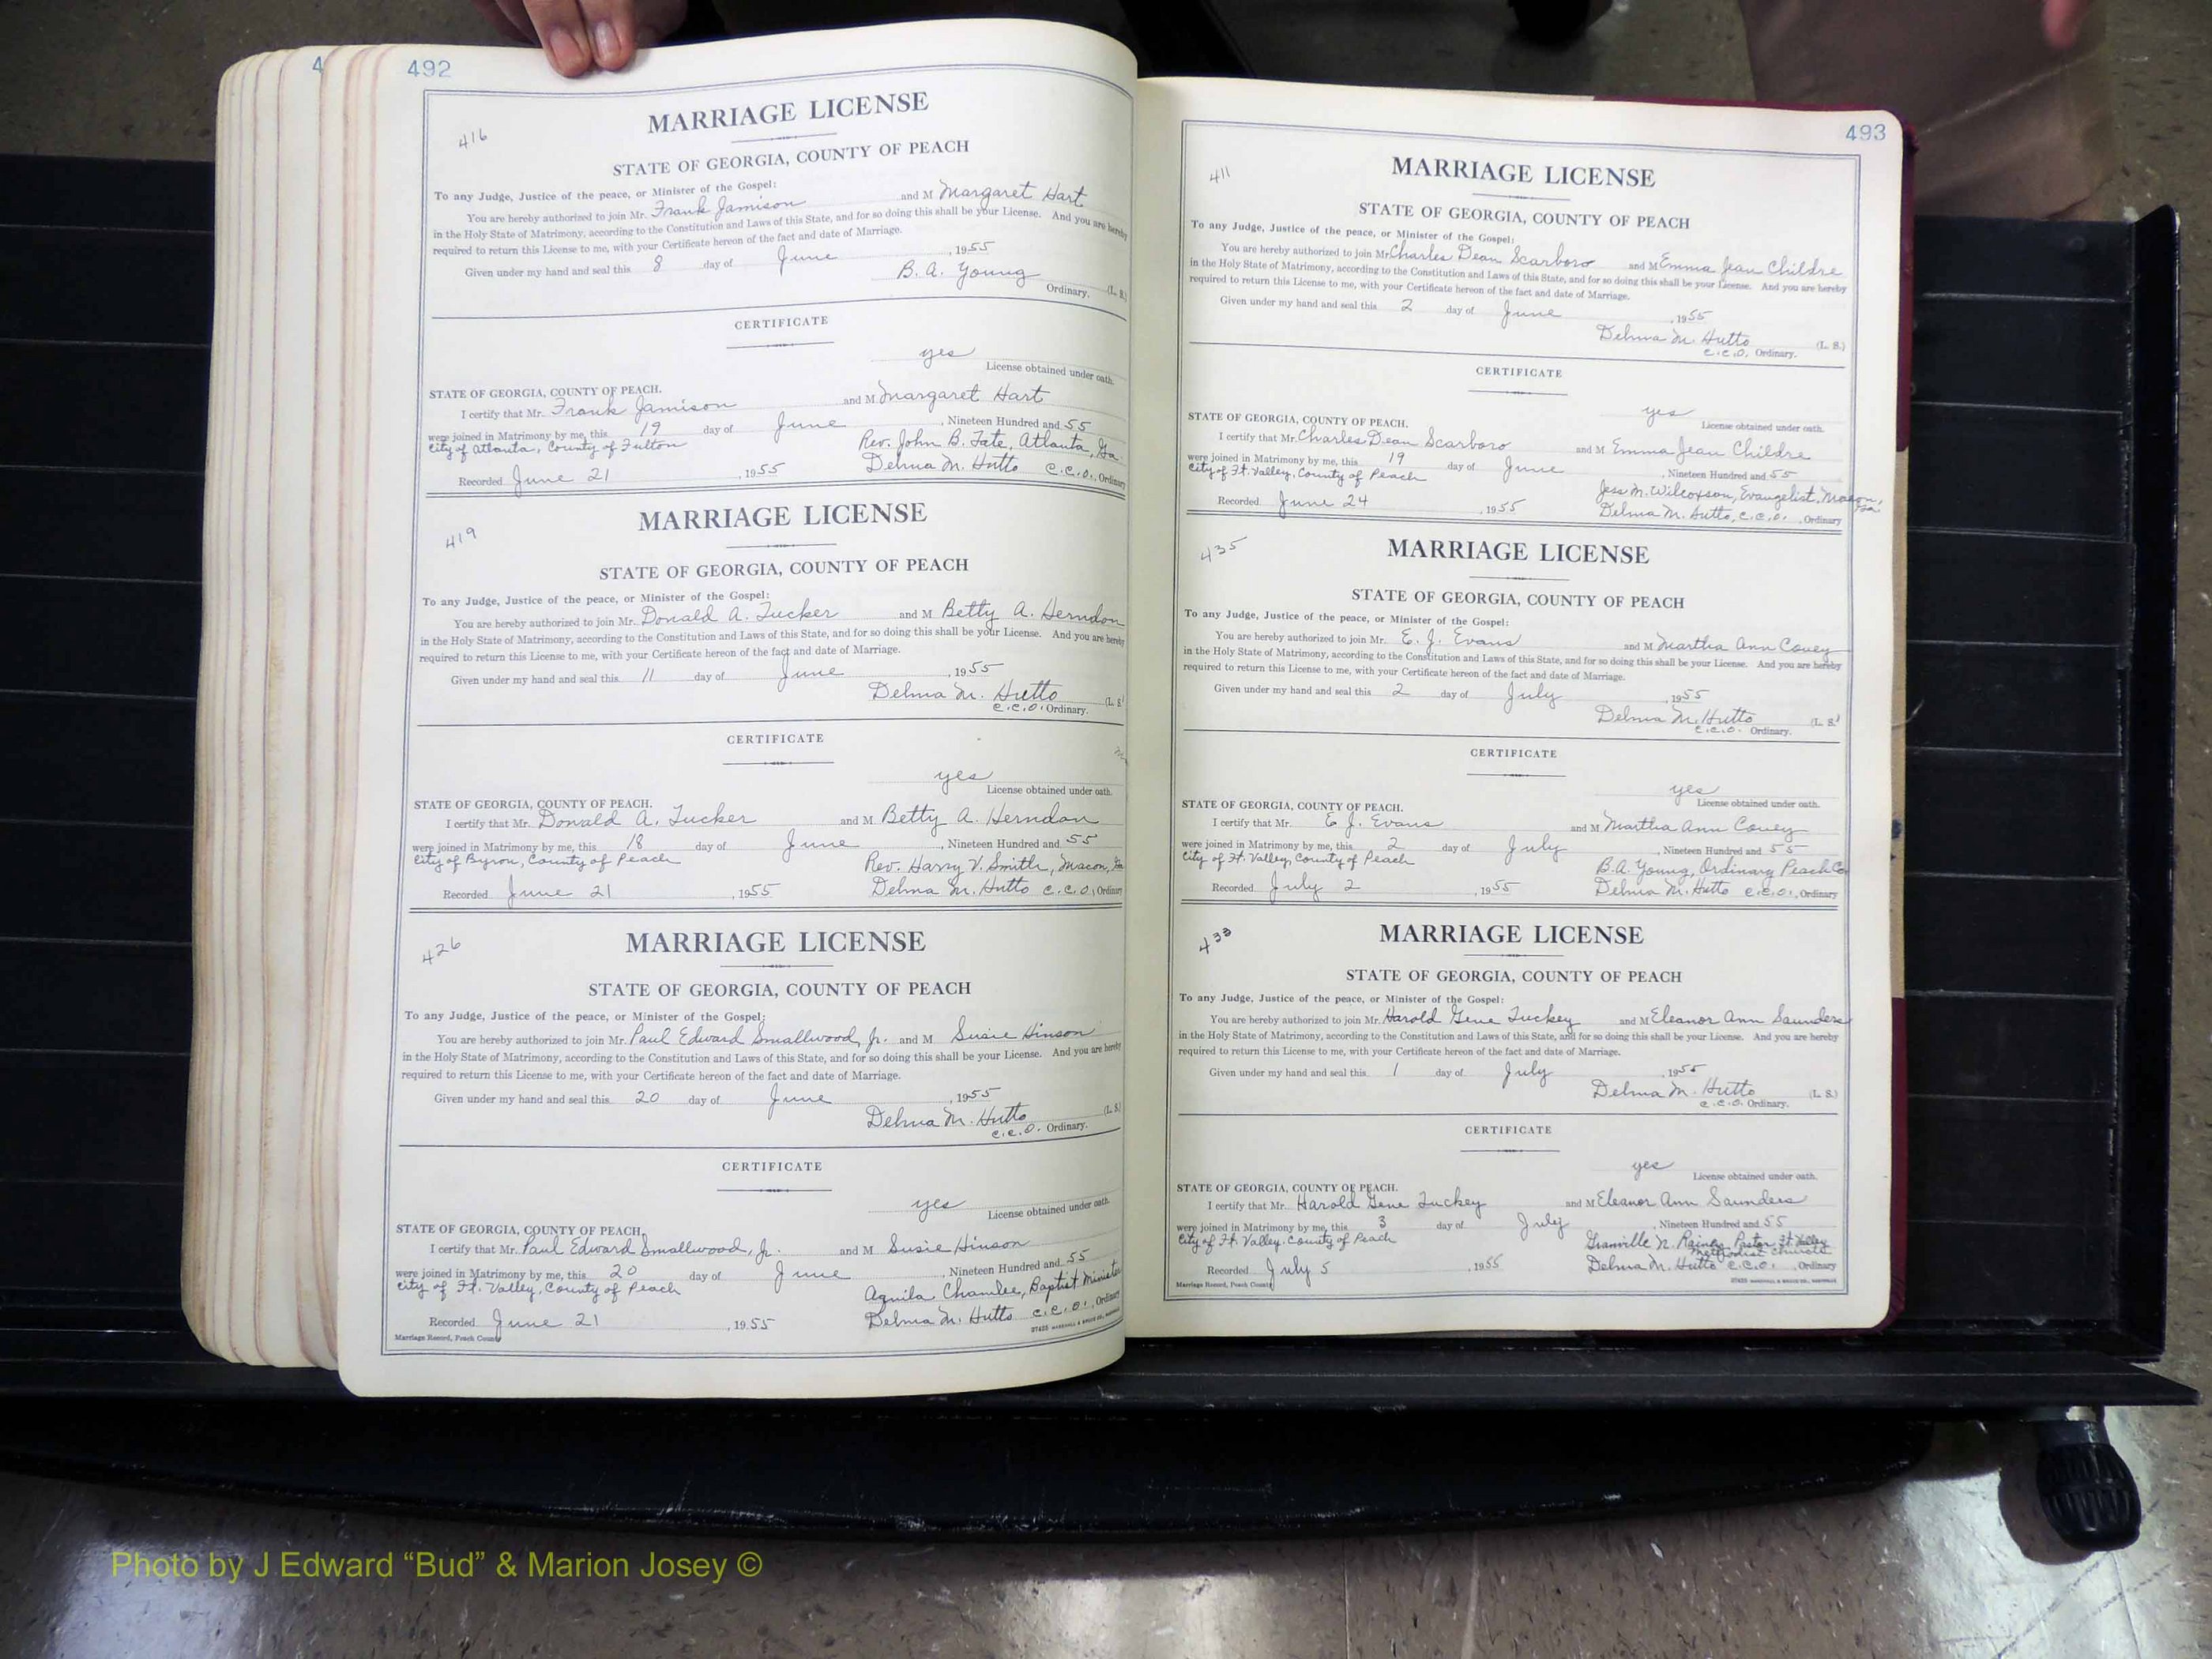 4
492
416
MARRIAGE LICENSE
STATE OF GEORGIA, COUNTY OF PEACH
To any Judge, Justice of the peace, or Minister of the Gospel:
You are hereby authorized to join Mr. Frank Jamison and M Margaret Hart
in the Holy State of Matrimony, according to the Constitution and Laws of this State, and for so doing this shall be your License. And you are hereby
required to return this License to me, with your Certificate hereon of the fact and date of Marriage.
Given under my hand and seal this 8 day of June, 1955
B. A. Young
Ordinary. (L. S.)
CERTIFICATE
yes
License obtained under oath.
STATE OF GEORGIA, COUNTY OF PEACH.
I certify that Mr. Frank Jamison and M Margaret Hart
were joined in Matrimony by me, this 19 day of June, Nineteen Hundred and 55
City of Atlanta, County of Fulton Rev. John B. Tate, Atlanta, Ga.
Recorded June 21, 1955 Delma M. Hutto C.C.O., Ordinary
419
MARRIAGE LICENSE
STATE OF GEORGIA, COUNTY OF PEACH
To any Judge, Justice of the peace, or Minister of the Gospel:
You are hereby authorized to join Mr. Donald A. Tucker and M Betty A. Herndon
in the Holy State of Matrimony, according to the Constitution and Laws of this State, and for so doing this shall be your License. And you are hereby
required to return this License to me, with your Certificate hereon of the fact and date of Marriage.
Given under my hand and seal this 11 day of June, 1955
Delma M. Hutto (L. S.
C.C.O. Ordinary.
CERTIFICATE
yes
License obtained under oath.
STATE OF GEORGIA, COUNTY OF PEACH.
I certify that Mr. Donald A. Tucker and M Betty A. Herndon
were joined in Matrimony by me, this 18 day of June, Nineteen Hundred and 55
City of Byron, County of Peach Rev. Harry V. Smith, Macon, Ga
Recorded June 21, 1955 Delma M. Hutto C.C.O., Ordinary
426
MARRIAGE LICENSE
STATE OF GEORGIA, COUNTY OF PEACH
To any Judge, Justice of the peace, or Minister of the Gospel:
You are hereby authorized to join Mr. Paul Edward Smallwood, Jr. and M Susie Hinson
in the Holy State of Matrimony, according to the Constitution and Laws of this State, and for so doing this shall be your License. And you are hereby
required to return this License to me, with your Certificate hereon of the fact and date of Marriage.
Given under my hand and seal this 20 day of June, 1955
Delma M. Hutto (L. S.)
C.C.O. Ordinary.
CERTIFICATE
yes
License obtained under oath.
STATE OF GEORGIA, COUNTY OF PEACH.
I certify that Mr. Paul Edward Smallwood, Jr. and M Susie Hinson
were joined in Matrimony by me, this 20 day of June, Nineteen Hundred and 55
City of Ft. Valley, County of Peach Aquila Chamlee, Baptist Minister
Recorded June 21, 1955 Delma M. Hutto C.C.O., Ordinary
Marriage Record, Peach County
493
411
MARRIAGE LICENSE
STATE OF GEORGIA, COUNTY OF PEACH
To any Judge, Justice of the peace, or Minister of the Gospel:
You are hereby authorized to join Mr. Charles Dean Scarboro and M Emma Jean Childre
in the Holy State of Matrimony, according to the Constitution and Laws of this State, and for so doing this shall be your License. And you are hereby
required to return this License to me, with your Certificate hereon of the fact and date of Marriage.
Given under my hand and seal this 2 day of June, 1955
Delma M. Hutto (L. S.)
C.C.O. Ordinary.
CERTIFICATE
yes
License obtained under oath.
STATE OF GEORGIA, COUNTY OF PEACH.
I certify that Mr. Charles Dean Scarboro and M Emma Jean Childre
were joined in Matrimony by me, this 19 day of June, Nineteen Hundred and 55
City of Ft. Valley, County of Peach Jess M. Wilcoxson, Evangelist, Macon, Ga.
Recorded June 24, 1955 Delma M. Hutto, C.C.O., Ordinary
435
MARRIAGE LICENSE
STATE OF GEORGIA, COUNTY OF PEACH
To any Judge, Justice of the peace, or Minister of the Gospel:
You are hereby authorized to join Mr. E. J. Evans and M Martha Ann Covey
in the Holy State of Matrimony, according to the Constitution and Laws of this State, and for so doing this shall be your License. And you are hereby
required to return this License to me, with your Certificate hereon of the fact and date of Marriage.
Given under my hand and seal this 2 day of July, 1955
Delma M. Hutto (L. S.
C.C.O. Ordinary.
CERTIFICATE
yes
License obtained under oath.
STATE OF GEORGIA, COUNTY OF PEACH.
I certify that Mr. E J. Evans and M Martha Ann Covey
were joined in Matrimony by me, this 2 day of July, Nineteen Hundred and 55
City of Ft. Valley, County of Peach B.A. Young, Ordinary Peach Co.
Recorded July 2, 1955 Delma M. Hutto C.C.O., Ordinary
433
MARRIAGE LICENSE
STATE OF GEORGIA, COUNTY OF PEACH
To any Judge, Justice of the peace, or Minister of the Gospel:
You are hereby authorized to join Mr. Harold Gene Tuckey and M Eleanor Ann Saunders
in the Holy State of Matrimony, according to the Constitution and Laws of this State, and for so doing this shall be your License. And you are hereby
required to return this License to me, with your Certificate hereon of the fact and date of Marriage.
Given under my hand and seal this 1 day of July, 1955
Delma M. Hutto (L. S.)
C.C.O. Ordinary.
CERTIFICATE
yes
License obtained under oath.
STATE OF GEORGIA, COUNTY OF PEACH.
I certify that Mr. Harold Gene Tuckey and M Eleanor Ann Saunders
were joined in Matrimony by me, this 3 day of July, Nineteen Hundred and 55
City of Ft. Valley, County of Peach Granville N. Rainey, Pastor Ft Valley
Methodist Church
Recorded July 5, 1955 Delma M. Hutto C.C.O., Ordinary
Marriage Record, Peach County
Photo by J Edward “Bud” & Marion Josey ©